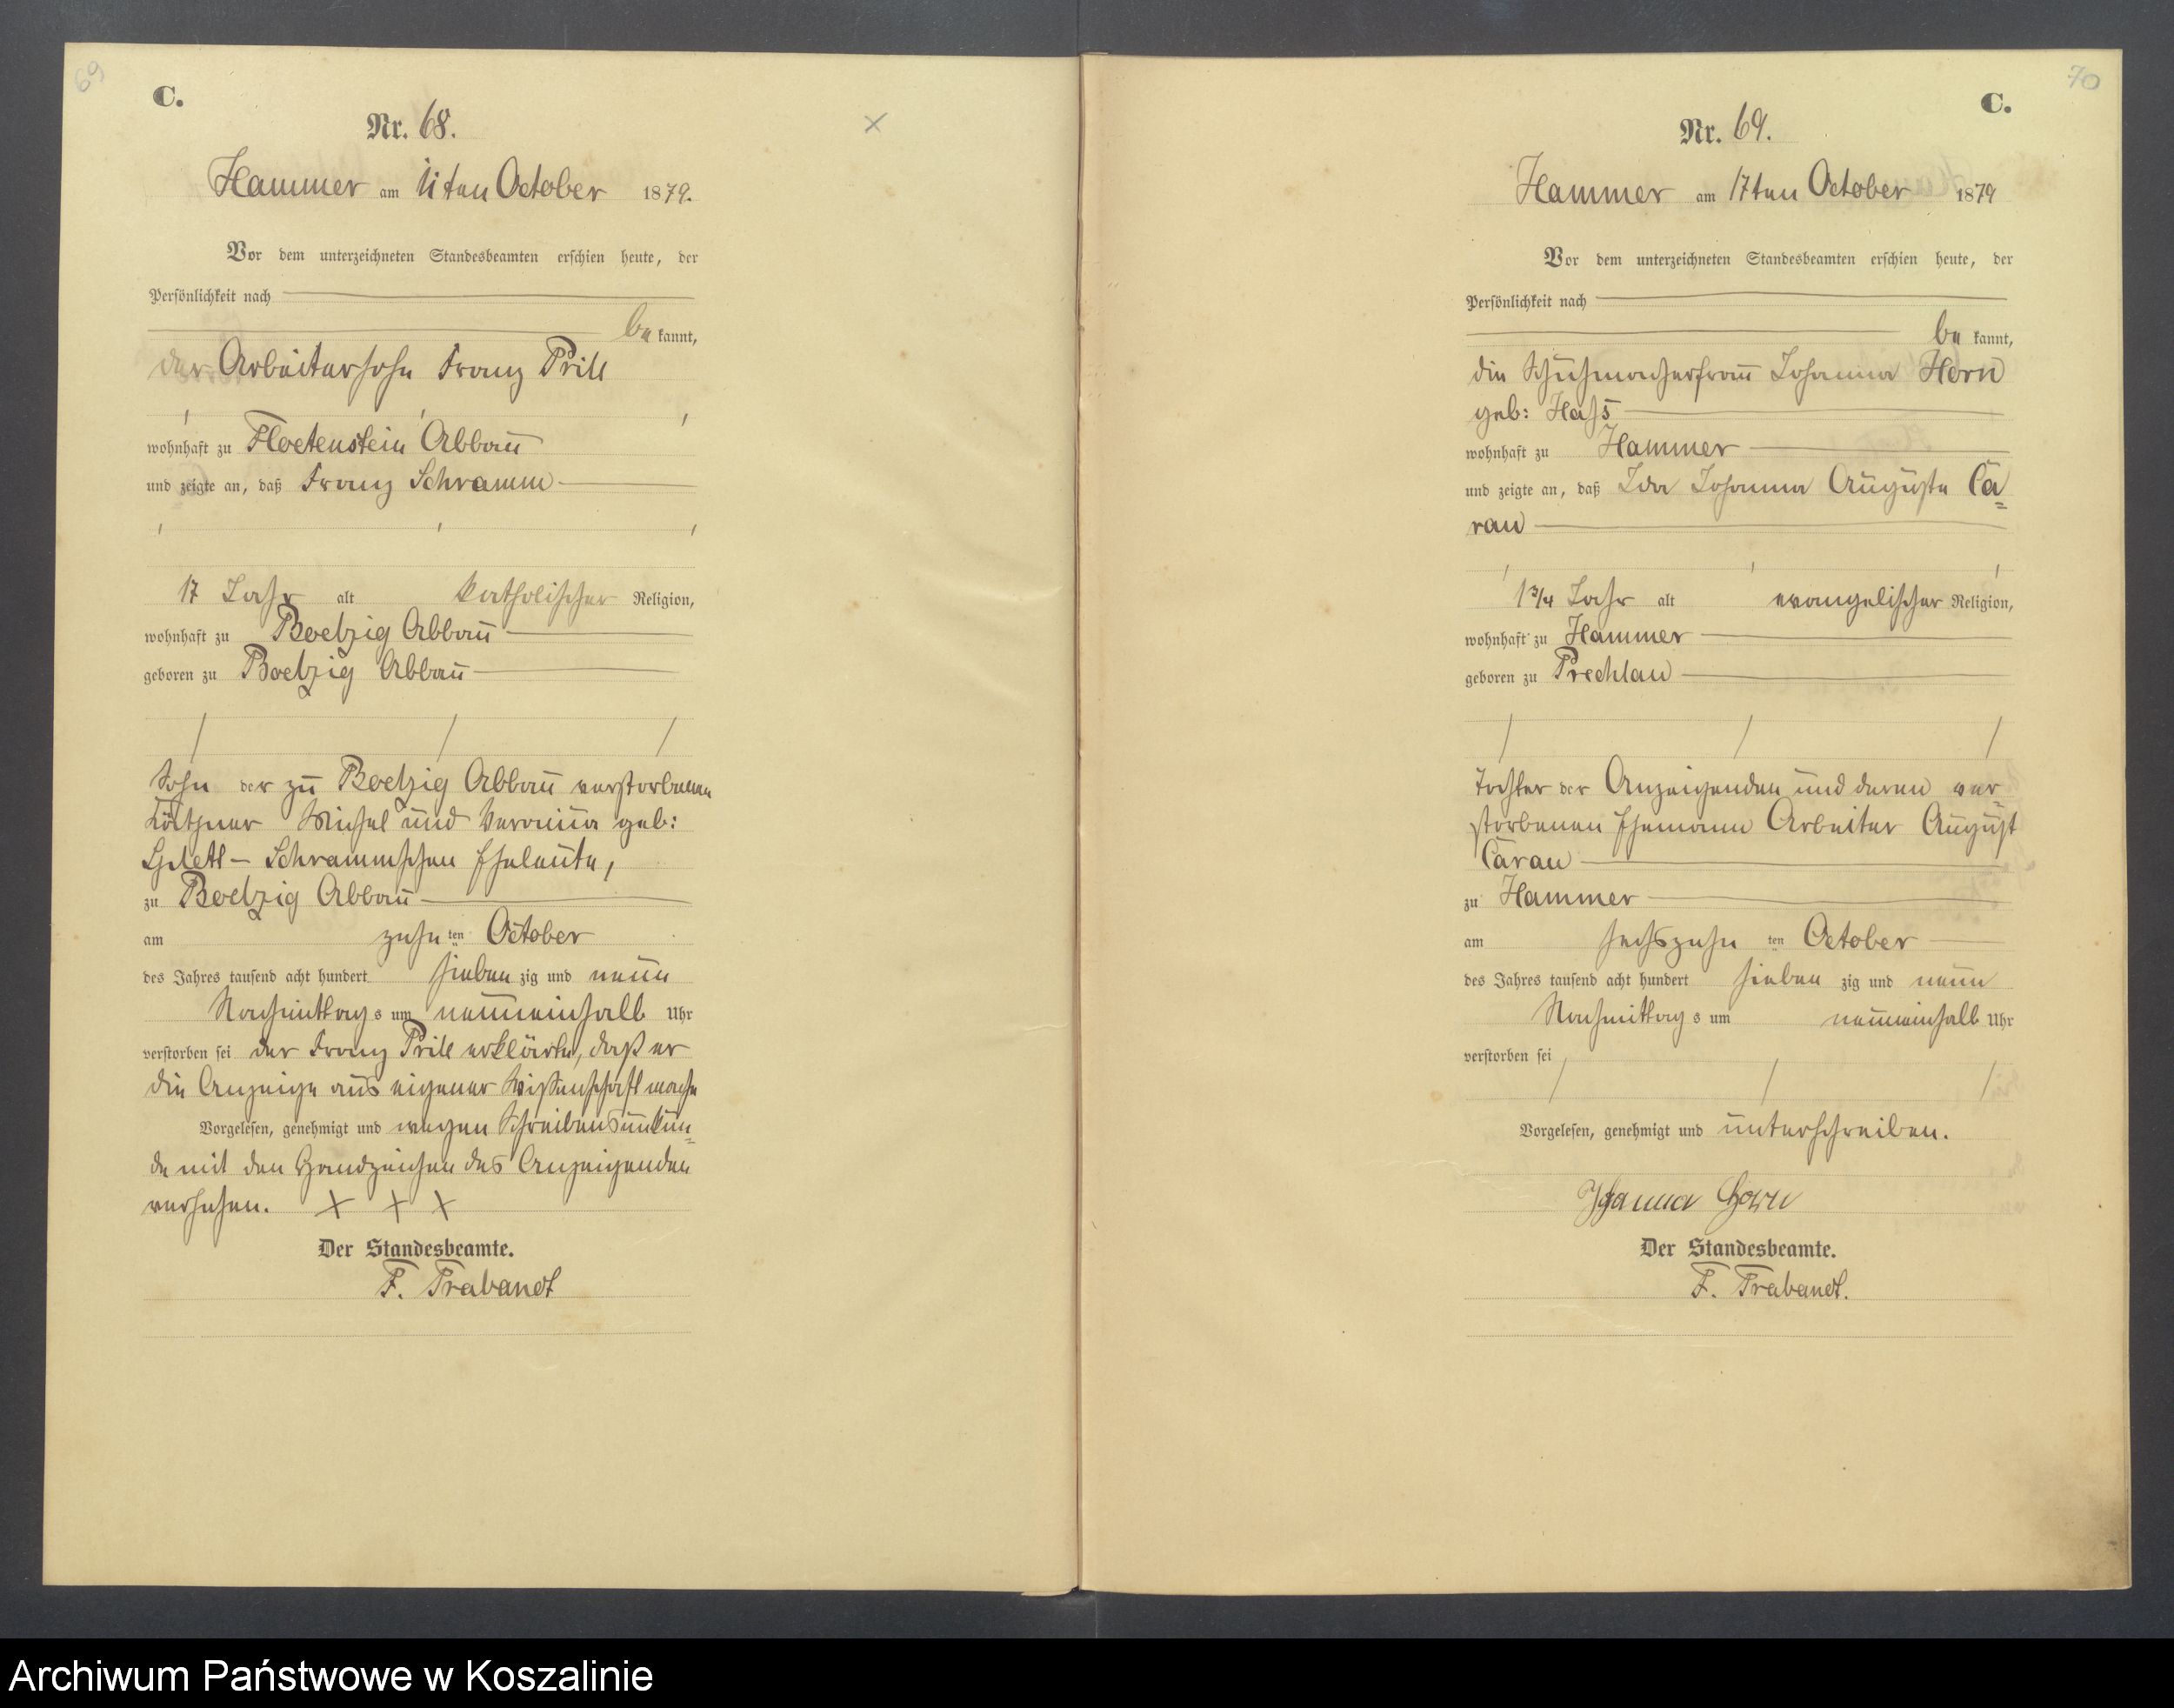 69
C.
Nr. 68.
Hammer am 11ten October 1879.
Vor dem unterzeichneten Standesbeamten erschien heute, der
Persönlichkeit nach
be kannt,
der Arbeitersohn Franz Prill
wohnhaft zu Floetenstein Abbau
und zeigte an, daß Franz Schramm
17 Jahr alt katholischer Religion,
wohnhaft zu Boelzig Abbau
geboren zu Boelzig Abbau
Sohn der zu Boelzig Abbau verstorbenen
Käthner Michel und Veronica geb:
Schrammschen Eheleute,
zu Boelzig Abbau
am zehn ten October
des Jahres tausend acht hundert sieben zig und neun
Nachmittag s um neuneinhalb Uhr
verstorben sei der Franz Prill erklärte, daß er
die Anzeige aus eigener Wißenschaft mache
Vorgelesen, genehmigt und wegen Schreibensunkun=
de mit den Handzeichen des Anzeigenden
versehen. X X X
Der Standesbeamte.
F. Trabandt
70
C.
Nr. 69.
Hammer am 17ten October 1879
Vor dem unterzeichneten Standesbeamten erschien heute, der
Persönlichkeit nach
be kannt,
die Schuhmacherfrau Johanna Horn
geb: Hass
wohnhaft zu Hammer
und zeigte an, daß Ida Johanna Auguste Ca=
rau
1 3/4 Jahr alt evangelischer Religion,
wohnhaft zu Hammer
geboren zu Prechlau
Tochter der Anzeigenden und deren ver=
storbenen Ehemann Arbeiter August
Carau
zu Hammer
am sechszehn ten October
des Jahres tausend acht hundert sieben zig und neun
Nachmittag s um neuneinhalb Uhr
verstorben sei
Vorgelesen, genehmigt und unterschreiben.
Johanna Horn
Der Standesbeamte.
F. Trabandt.
Archiwum Państwowe w Koszalinie